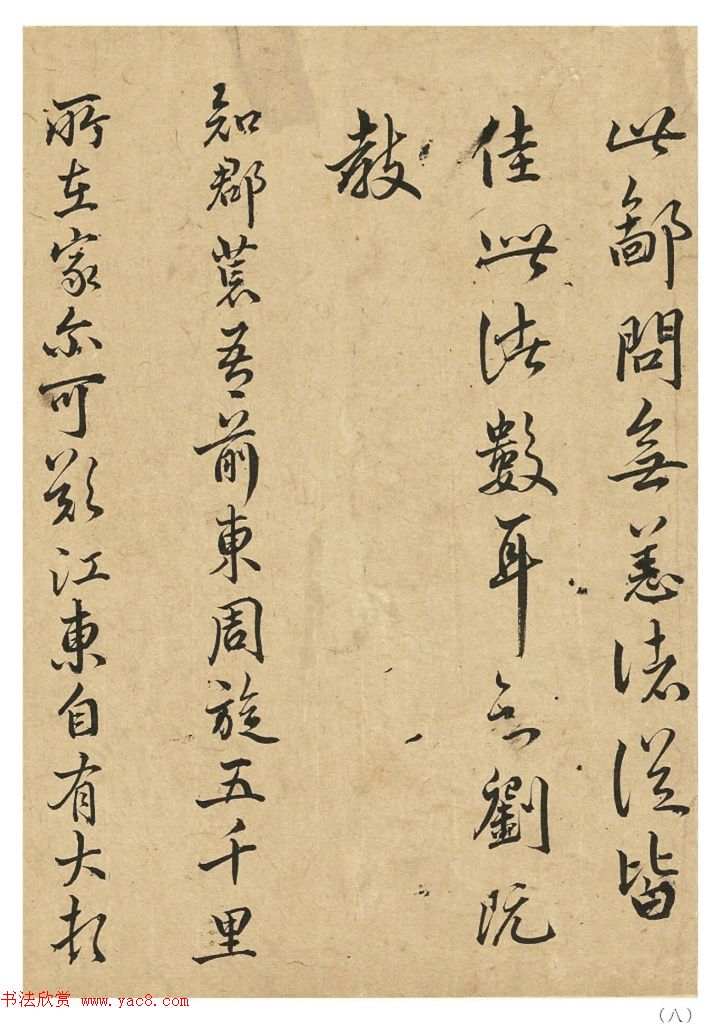 此鄙問無恙諸從皆
佳此數耳劉既
教
知郡荒吾前東周旋五千里
所在家尒可歎江東自有大
书法欣赏 www.yac8.com
（八）